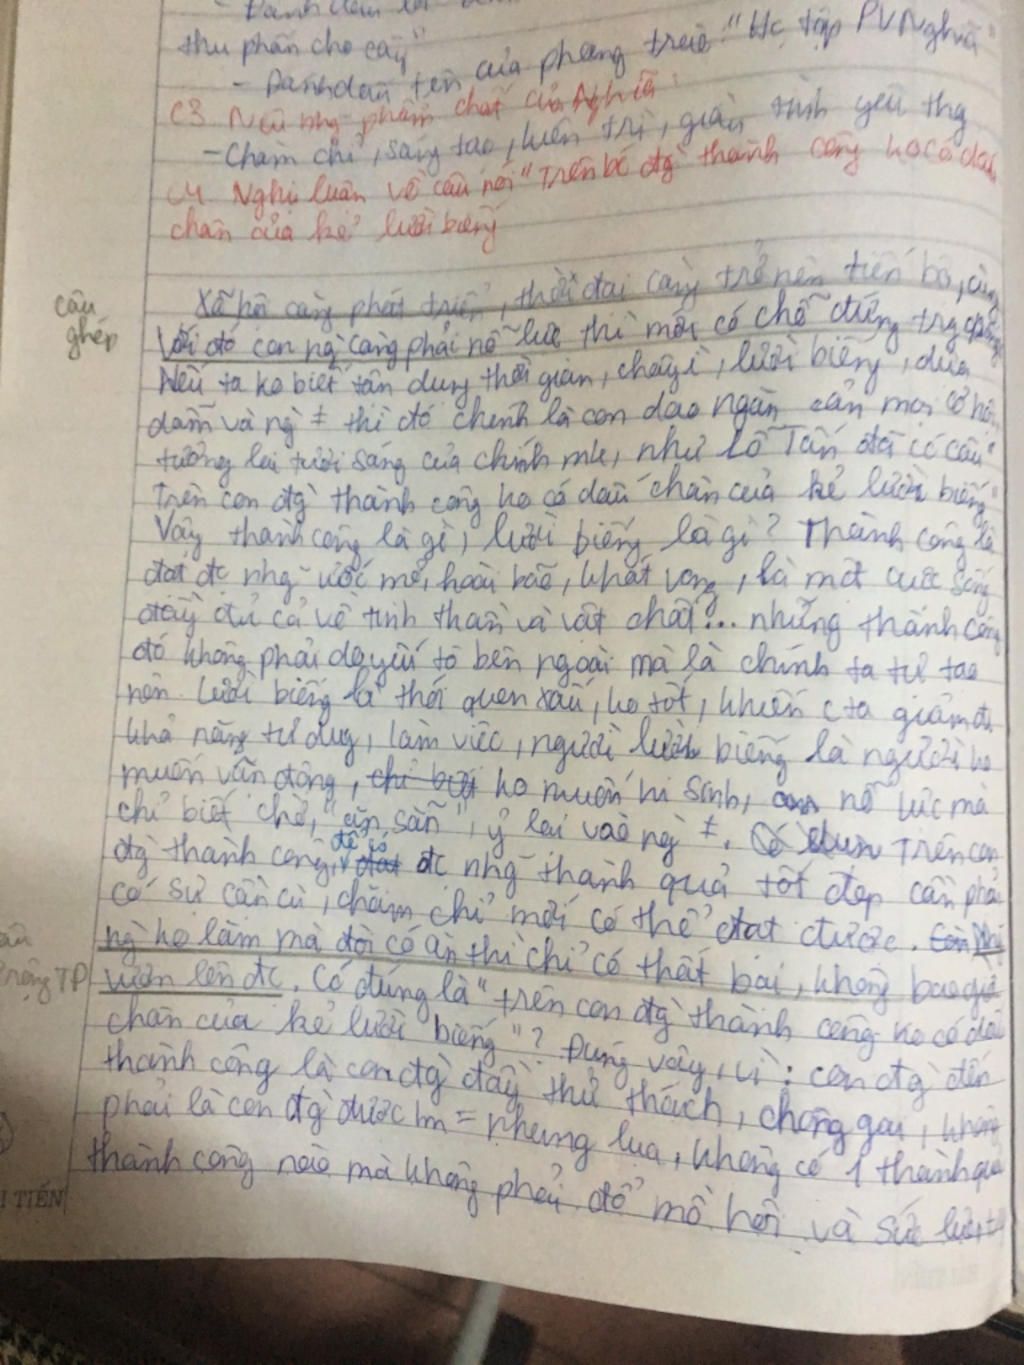 - Đánh dấu
thu phấn cho cây"
- Đánh dấu tên của phong trào "Học tập PV Nghĩa"
C3. Nêu nhg phẩm chất của Nghĩa
- Chăm chỉ, sáng tạo, kiên trì, giàu tình yêu thg
C4. Nghị luận về câu nói "Trên bc đg thành công ko có dấu
chân của kẻ lười biếng
Xã hội càng phát triển, thời đại càng trở nên tiến bộ, cùng
câu ghép
Với đó con ng càng phải nỗ lực thì mới có chỗ đứng trg
Nếu ta ko biết tận dụng thời gian, chây ì, lười biếng, dựa
dẫm và ng ≠ thì đó chính là con dao ngăn cản mọi cơ hội,
tương lai tươi sáng của chính mk, như Lỗ Tấn đã có câu "
Trên con đg thành công ko có dấu chân của kẻ lười biếng"
Vậy thành công là gì, lười biếng là gì? Thành công là
đạt đc nhg ước mơ, hoài bão, khát vọng, là một cuộc sống
đầy đủ cả về tinh thần và vật chất... những thành công
đó không phải do yếu tố bên ngoài mà là chính ta tự tạo
nên. Lười biếng là thói quen xấu, ko tốt, khiến c ta giảm đi
khả năng tư duy, làm việc, người lười biếng là người ko
muốn vận động, ko muốn hi sinh, nỗ lực mà
chỉ biết chờ, "ăn sẵn", ỷ lại vào ng ≠. Trên con
đg thành công, để có đc nhg thành quả tốt đẹp cần phải
có sự cần cù, chăm chỉ mới có thể đạt được.
ng ko làm mà đòi có ăn thì chỉ có thất bại, không bao giờ
TP
vươn lên đc. Có đúng là "trên con đg thành công ko có dấu
chân của kẻ lười biếng"? Đúng vậy, vì: con đg đến
thành công là con đg đầy thử thách, chông gai, không
phải là con đg được lm = nhung lụa, không có 1 thành quả
thành công nào mà không phải đổ mồ hôi và sức lực
TIẾN